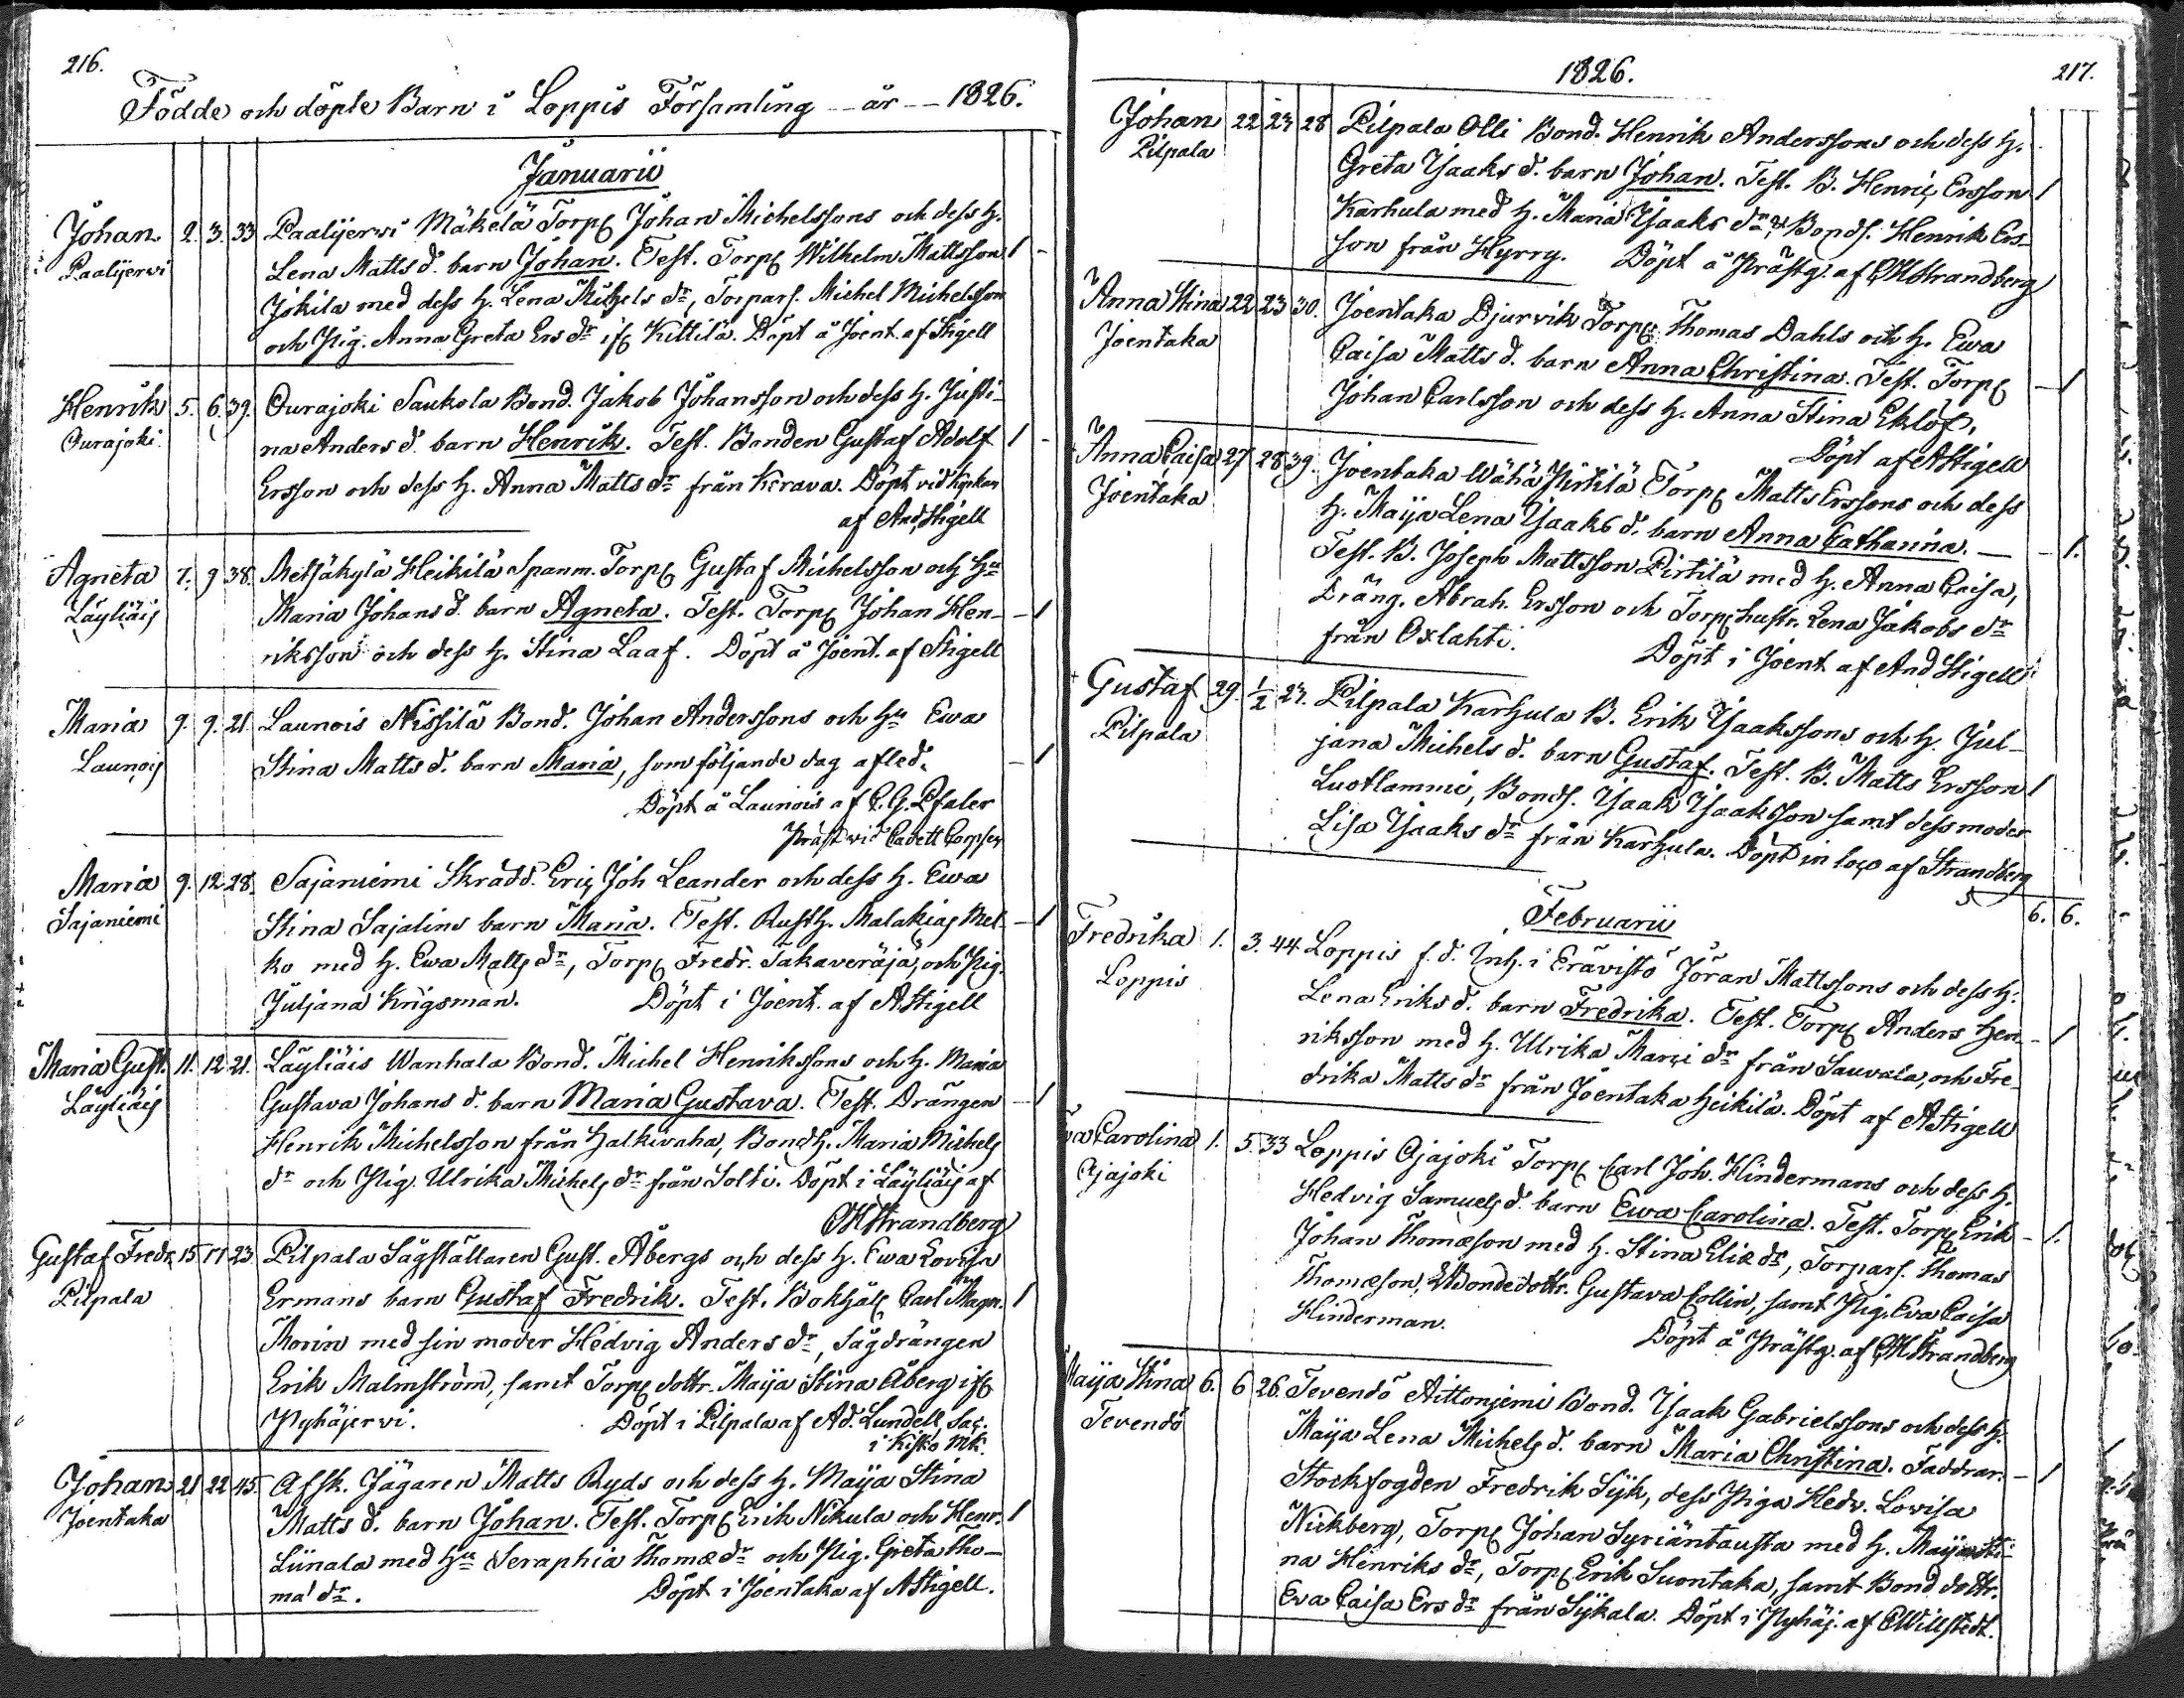 216.
Födde och döpte Barn i Loppis Församling år 1826.
Januarii
Johan 2. 3. 33 Paalijerwi Mäkelä Torp. Johan Michelssons och dess h.
Paalijerwi Lena Matts d. barn Johan. Test. Torp. Wilhelm Mattsson 1
Jokila med dess h. Lena Michels dr, Torpars. Michel Michelsson
och Pig. Anna Greta Ers dr ifr. Kittilä. Döpt å Joent. af Stigell
Henrik 5. 6. 39. Ourajoki Saukola Bond. Jakob Johansson och dess h. Justi-
Ourajoki. na Anders d. barn Henrik. Test. Bonden Gustaf Adolf 1
Ersson och dess h. Anna Matts dr från Kerava. Döpt vid Kyrkan
af And. Stigell
Agneta 7. 9 38. Metsäkylä Heikilä Spanm. Torp. Gustaf Michelsson och Hu
Läyliäis Maria Johans d. barn Agneta. Test. Torp. Johan Hen- 1
riksson och dess h. Stina Laaf. Döpt å Joent. af Stigell
Maria 9. 9. 21. Launois Nissilä Bond. Johan Anderssons och Hu Ewa
Launois Stina Matts d. barn Maria, som följande dag afled. 1
Döpt å Launois af C. G. Pfaler
Präst vid Cadett Corpsen
Maria 9. 12 28. Sajaniemi Skrädd. Eric Joh Leander och dess h. Ewa
Sajaniemi Stina Sajalins barn Maria. Test. Rusth. Malakias Mel- 1
ko med h. Ewa Matts dr, Torp. Fredr. Takaveräjä, och Pig.
Juljana Krigsman. Döpt i Joent. af AStigell
Maria Gust. 11. 12 21. Läyliäis Wanhala Bond. Michel Henrikssons och h. Maria
Läyliäis Gustava Johans d. barn Maria Gustava. Test. Drängen 1
Henrik Michelsson från Halkivaha, Bondh. Maria Michels
dr och Pig. Ulrika Michels dr från Solti. Döpt i Läyliäis af
CHStrandberg
Gustaf Fredr. 15 17 23. Pilpala Sågställaren Gust. Åbergs och dess h. Ewa Lovisa
Pilpala Ermans barn Gustaf Fredrik. Test. Bokhåll. Carl Magn. 1
Thorin med sin moder Hedvig Anders dr, Sågdrängen
Erik Malmström, samt Torp. dottr. Maija Stina Åberg ifr.
Pyhäjervi. Döpt i Pilpala af Ad. Lundell, Sac.
i Kisko Mk.
Johan 21 22 45. Afsk. Jägaren Matts Ryds och dess h. Maija Stina
Joentaka Matts d. barn Johan. Test. Torp. Erik Nikula och Henr. 1
Liinala med Hu Seraphia Thomæ dr och Pig. Greta Tho-
mæ dr. Döpt i Joentaka af AStigell.
1826. 217.
Johan 22 23 28 Pilpala Olli Bond. Henrik Anderssons och dess h.
Pilpala Greta Isaaks d. barn Johan. Test. B. Henric Ersson 1
Karhula med h. Maria Isaaks dr, Bonds. Henrik Ers-
son från Hyrry. Döpt å Prästg. af CHStrandberg
Anna Stina 22 23 30. Joentaka Djurvik Torp. Thomas Dahls och h. Ewa
Joentaka Caisa Matts d. barn Anna Christina. Test. Torp. 1
Johan Carlsson och dess h. Anna Stina Eklöf,
Döpt af AStigell
Anna Caisa 27 28 39. Joentaka Wähä Pirtilä Torp. Matts Erssons och dess
Joentaka h. Maija Lena Isaaks d. barn Anna Catharina. 1.
Test. B. Joseph Mattsson Pirtilä med h. Anna Caisa,
Dräng. Abrah. Ersson och Torp. hustr. Lena Jakobs dr
från Oxlahti. Döpt i Joent. af And Stigell
Gustaf 29. 1/2 27. Pilpala Karhula B. Erik Isaakssons och h. Jul-
Pilpala jana Michels d. barn Gustaf. Test. B. Matts Ersson 1
Luotlammi, Bonds. Isaak Isaaksson samt dess moder
Lisa Isaaks dr från Karhula. Döpt in loco af Strandberg
6. 6.
Februarii
Fredrika 1. 3. 44 Loppis f. d. Inh. i Erävistö Jöran Mattssons och dess h.
Loppis Lena Eriks d. barn Fredrika. Test. Torp. Anders Hen- 1
riksson med h. Ulrika Marci dr från Sauvala, och Fre-
drika Matts dr från Joentaka Heikilä. Döpt af AStigell
va Carolina 1. 5. 33 Loppis Ojajoki Torp. Carl Joh. Hindermans och dess h.
Ojajoki Hedvig Samuels d. barn Ewa Carolina. Test. Torp. Erik 1.
Johan Thomæson med h. Stina Eliæ dr, Torpars. Thomas
Thomæson, Bondedottr. Gustava Collin, samt Pig. Eva Caisa
Hinderman. Döpt å Prästg. af CHStrandberg
Maija Stina 6. 6 26. Tevendö Aittoniemi Bond. Isaak Gabrielssons och dess h.
Tevendö Maija Lena Michels d. barn Maria Christina. Faddrar. 1
Stockfogden Fredrik Sijk, dess Piga Hedv. Lovisa
Nickberg, Torp. Johan Syriäntausta med h. Maija Sti-
na Henriks dr, Torp. Erik Suontaka, samt Bond dottr.
Eva Caisa Ers dr från Sijkala. Döpt i Pyhäj. af CWillstedt.